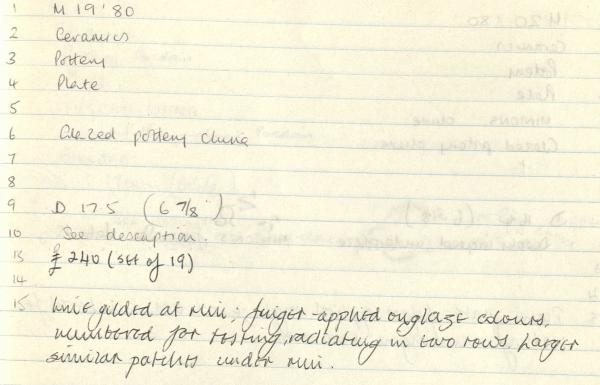 1 M 19'80
2 Ceramics
3 Pottery
4 Plate
5
6 Glazed pottery china
7
8
9 D 17.5 (6 7/8")
10 See description.
13 £240 (set of 19)
14
15 Line gilded at rim; finger-applied onglaze colours,
numbered for testing, radiating in two rows. Larger
similar patches under rim.